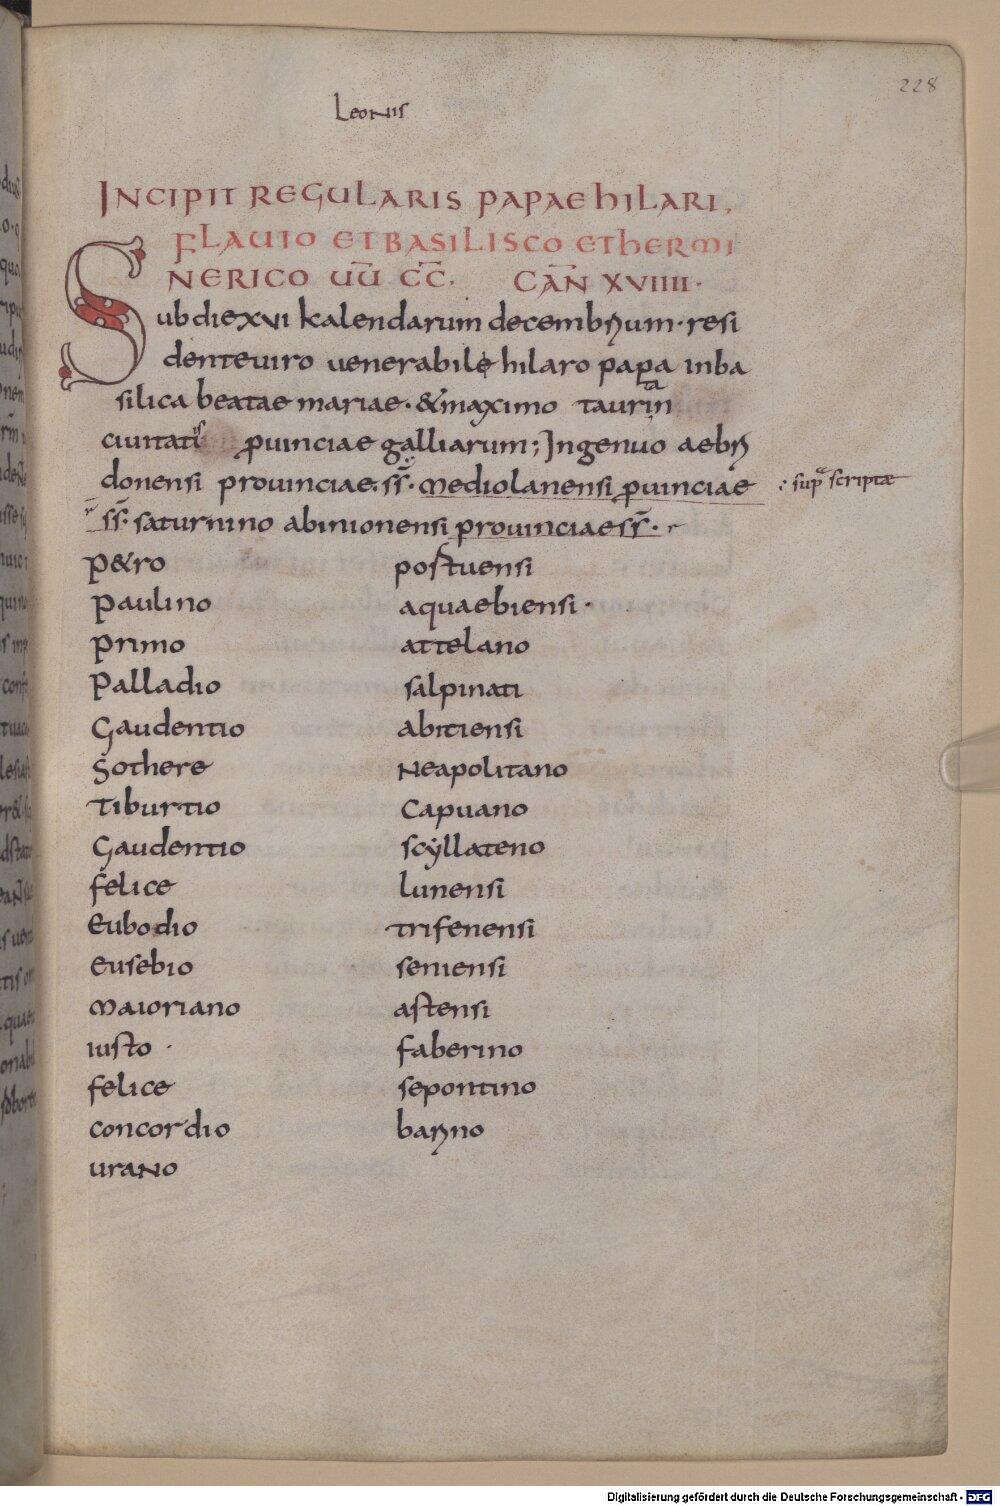 228
Leonis
INCIPIT REGULARIS PAPAE hILARI,
FLAUIO ET BASILISCO ET hERMI
NERICO UŪ CC̄. CAN̄ XVIIII·
Sub die xvi kalendarum decembrium· resi
dente uiro uenerabile hilaro papa in ba
silica beatae mariae· & maximo taurina
ciuitatis prouinciae galliarum; Ingenuo aebri
donensi prouinciae· ss̄· mediolanensi prouinciae
:· supra scriptae
ss̄· saturnino abinionensi prouinciae ss̄·
P&ro postuensi
Paulino aquaebiensi·
Primo attelano
Palladio salpinati
Gaudentio abitiensi
Sothere Neapolitano
Tiburtio Capuano
Gaudentio scẏllateno
felice lunensi
Eubodio trifenensi
Eusebio seniensi
Maioriano astensi
iusto · faberino
felice sepontino
concordio barino
uraNo
Digitalisierung gefördert durch die Deutsche Forschungsgemeinschaft - DFG